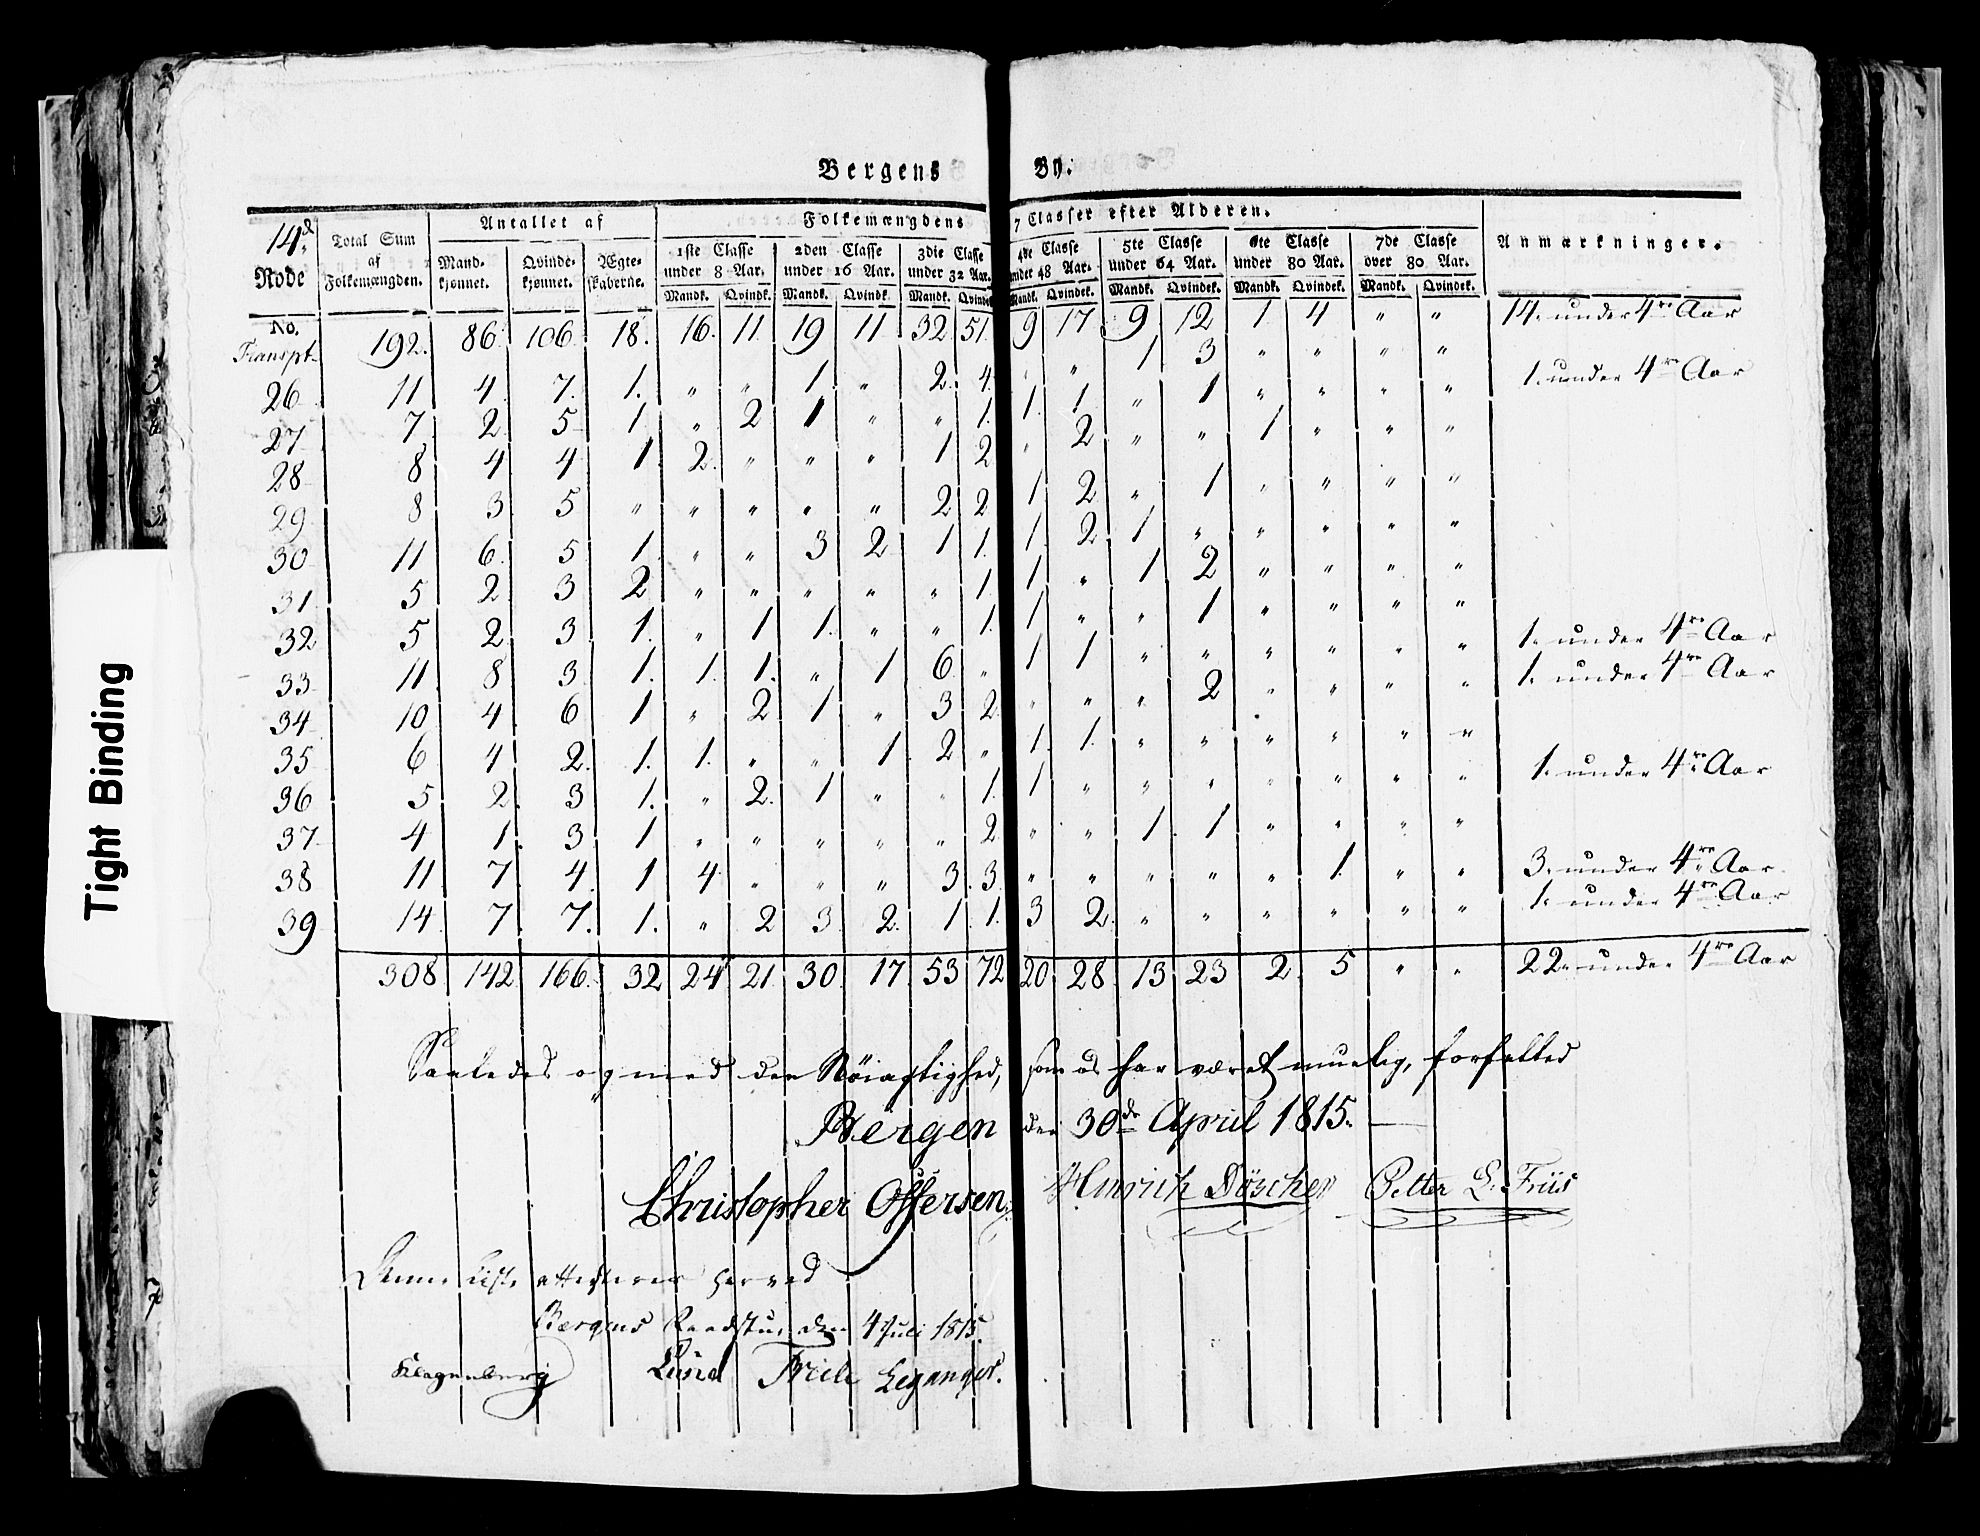 Bergens By.
14d. Rode No. | Total Sum af Folkemængden. | Antallet af Mandkjønnet. | Qvindekjønnet. | Ægteskaberne. | Folkemængdens 7 Classer efter Alderen. 1ste Classe under 8 Aar. Mandk. | Qvindk. | 2den Classe under 16 Aar. Mandk. | Qvindk. | 3die Classe under 32 Aar. Mandk. | Qvindek. | 4de Classe under 48 Aar. Mandk. | Qvindek. | 5te Classe under 64 Aar. Mandk. | Qvindek. | 6te Classe under 80 Aar. Mandk. | Qvindek. | 7de Classe over 80 Aar. Mandk. | Qvindek. | Anmærkninger.
Transpt. 192. 86. 106. 18. 16. 11 19 11 32 51. 9 17 9 12 1 4 " " 14. under 4re Aar
26 11 4 7. 1. " " 1. " 2. 4. " " 1 3 " " " "
27 7 2 5 1 " 2 1 " " 1. 1. 1 " 1 " " " " 1. under 4re Aar
28 8 4 4 1 2. " " " 1 2 " 2 " " 1 " " "
29 8 3 5 " " " " " 2 2 1 2 " 1 " " " "
30 11 6. 5 1. " " 3 2 1 1. 1 2 1 " " " " "
31 5 2 3 2 " " " " " 1 1 " 1 2 " " " "
32 5 2 3 1. " 1 1. " " 1. 1 " " 1 " " " "
33 11 8 3 1. 1. 1. " 1 6 " 1 1 " " " " " " 1. under 4re Aar
34 10 4 6 1 " 2 1 " 3 2 " " " 2 " " " " 1. under 4re Aar
35 6 4 2. 1. 1. " " 1 2 " 1. 1. " " " " " "
36 5 2. 3 1. " 2. 1 " " 1. 1 " " " " " " " 1. under 4re Aar
37 4 1. 3 1 " " " " " 2 " " 1. 1 " " " "
38 11 7 4 1 4 " " " 3. 3. " " " " " 1. " " 3. under 4re Aar
39 14 7 7. 1. " 2 3 2. 1. 1. 3 2. " " " " " " 1. under 4re Aar
308 142 166. 32 24 21 30 17 53 72 20 28 13 23 2. 5 " " 22. under 4re Aar
Saaledes og med den Nøiagtighed, som os har været muelig, forfatted
Bergen den 30de April 1815.
Christopher Offersen Hinrich Döscher Petter L. Friis
Denne Liste attesteres herved
Bergens Raadstue den 4 Juli 1815.
Klagenberg Lund Friele Leganger.
Tight Binding